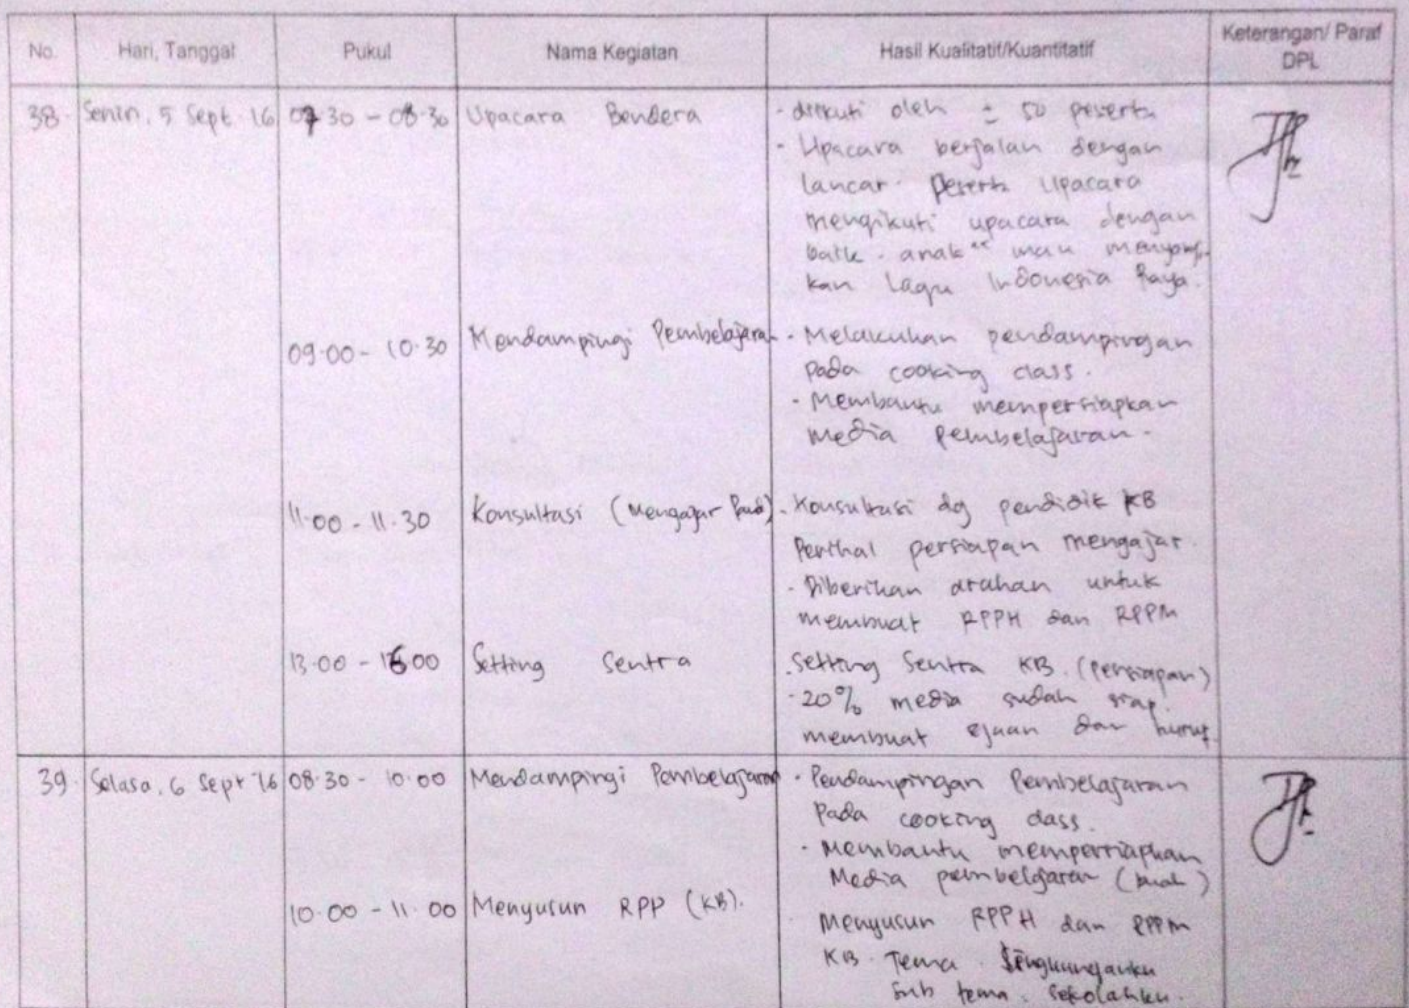 No. Hari, Tanggal Pukul Nama Kegiatan Hasil Kualitatif/Kuantitatif Keterangan/ Paraf DPL
38. Senin, 5 Sept 16 07 30 - 08.30 Upacara Bendera - diikuti oleh ± 50 peserta
- Upacara berjalan dengan
lancar. Peserta upacara
mengikuti upacara dengan
baik. anak" mau menyanyi-
kan lagu Indonesia Raya.
09.00 - 10.30 Mendampingi Pembelajaran - Melakukan pendampingan
pada cooking class.
- Membantu mempersiapkan
media pembelajaran.
11.00 - 11.30 Konsultasi (Mengajar Paud) - Konsultasi dg pendidik KB
Perihal persiapan mengajar.
- Diberikan arahan untuk
membuat RPPH dan RPPM
13.00 - 16 00 Setting Sentra - Setting Sentra KB. (Persiapan)
- 20% media sudah siap.
membuat ejaan dan huruf.
39. Selasa, 6 Sept '16 08.30 - 10.00 Mendampingi Pembelajaran - Pendampingan Pembelajaran
Pada cooking class.
- Membantu mempersiapkan
Media pembelajaran (buah)
10.00 - 11.00 Menyusun RPP (KB). Menyusun RPPH dan RPPM
KB. Tema. Lingkunganku
Sub tema. Sekolahku.